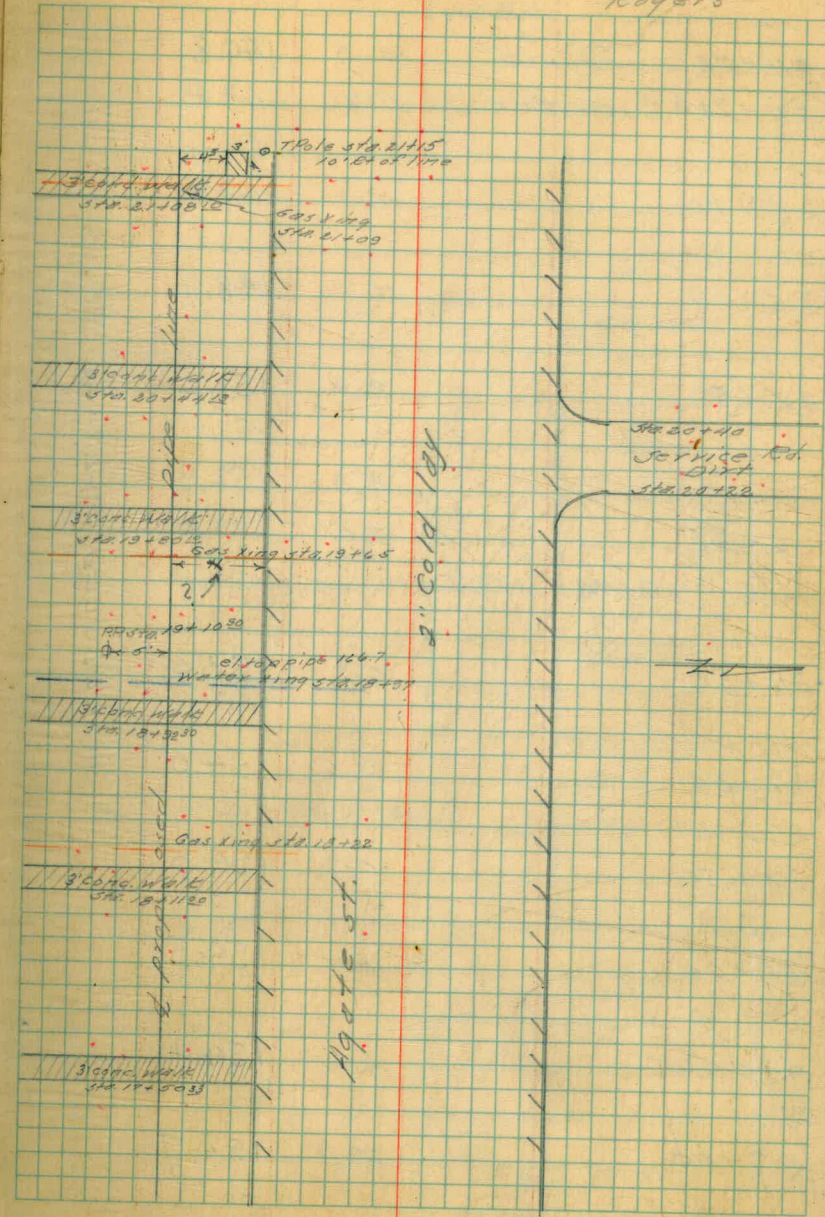 Rogers
4⁵ 3'
T Pole sta. 21+15
10' Rt of line
3' conc. walk
Sta. 21+08¹⁰
Gas Xing
Sta. 21+09
3' Conc. Walk
Sta. 20+44¹²
Sta. 20+40
Service Rd.
Dirt
Sta. 20+22
3' Conc. Walk
Sta. 19+80¹⁰
Gas Xing sta. 19+65
2
PP sta. 19+10³⁰
6'
el. top pipe 166.7
Water Xing sta. 18+97
3' conc. walk
Sta. 18+92³⁰
Gas Xing sta. 18+22
3' conc. walk
Sta. 18+11²⁰
3' conc. walk
Sta. 17+50³³
℄ proposed pipe line
Agate St.
2" Cold lay